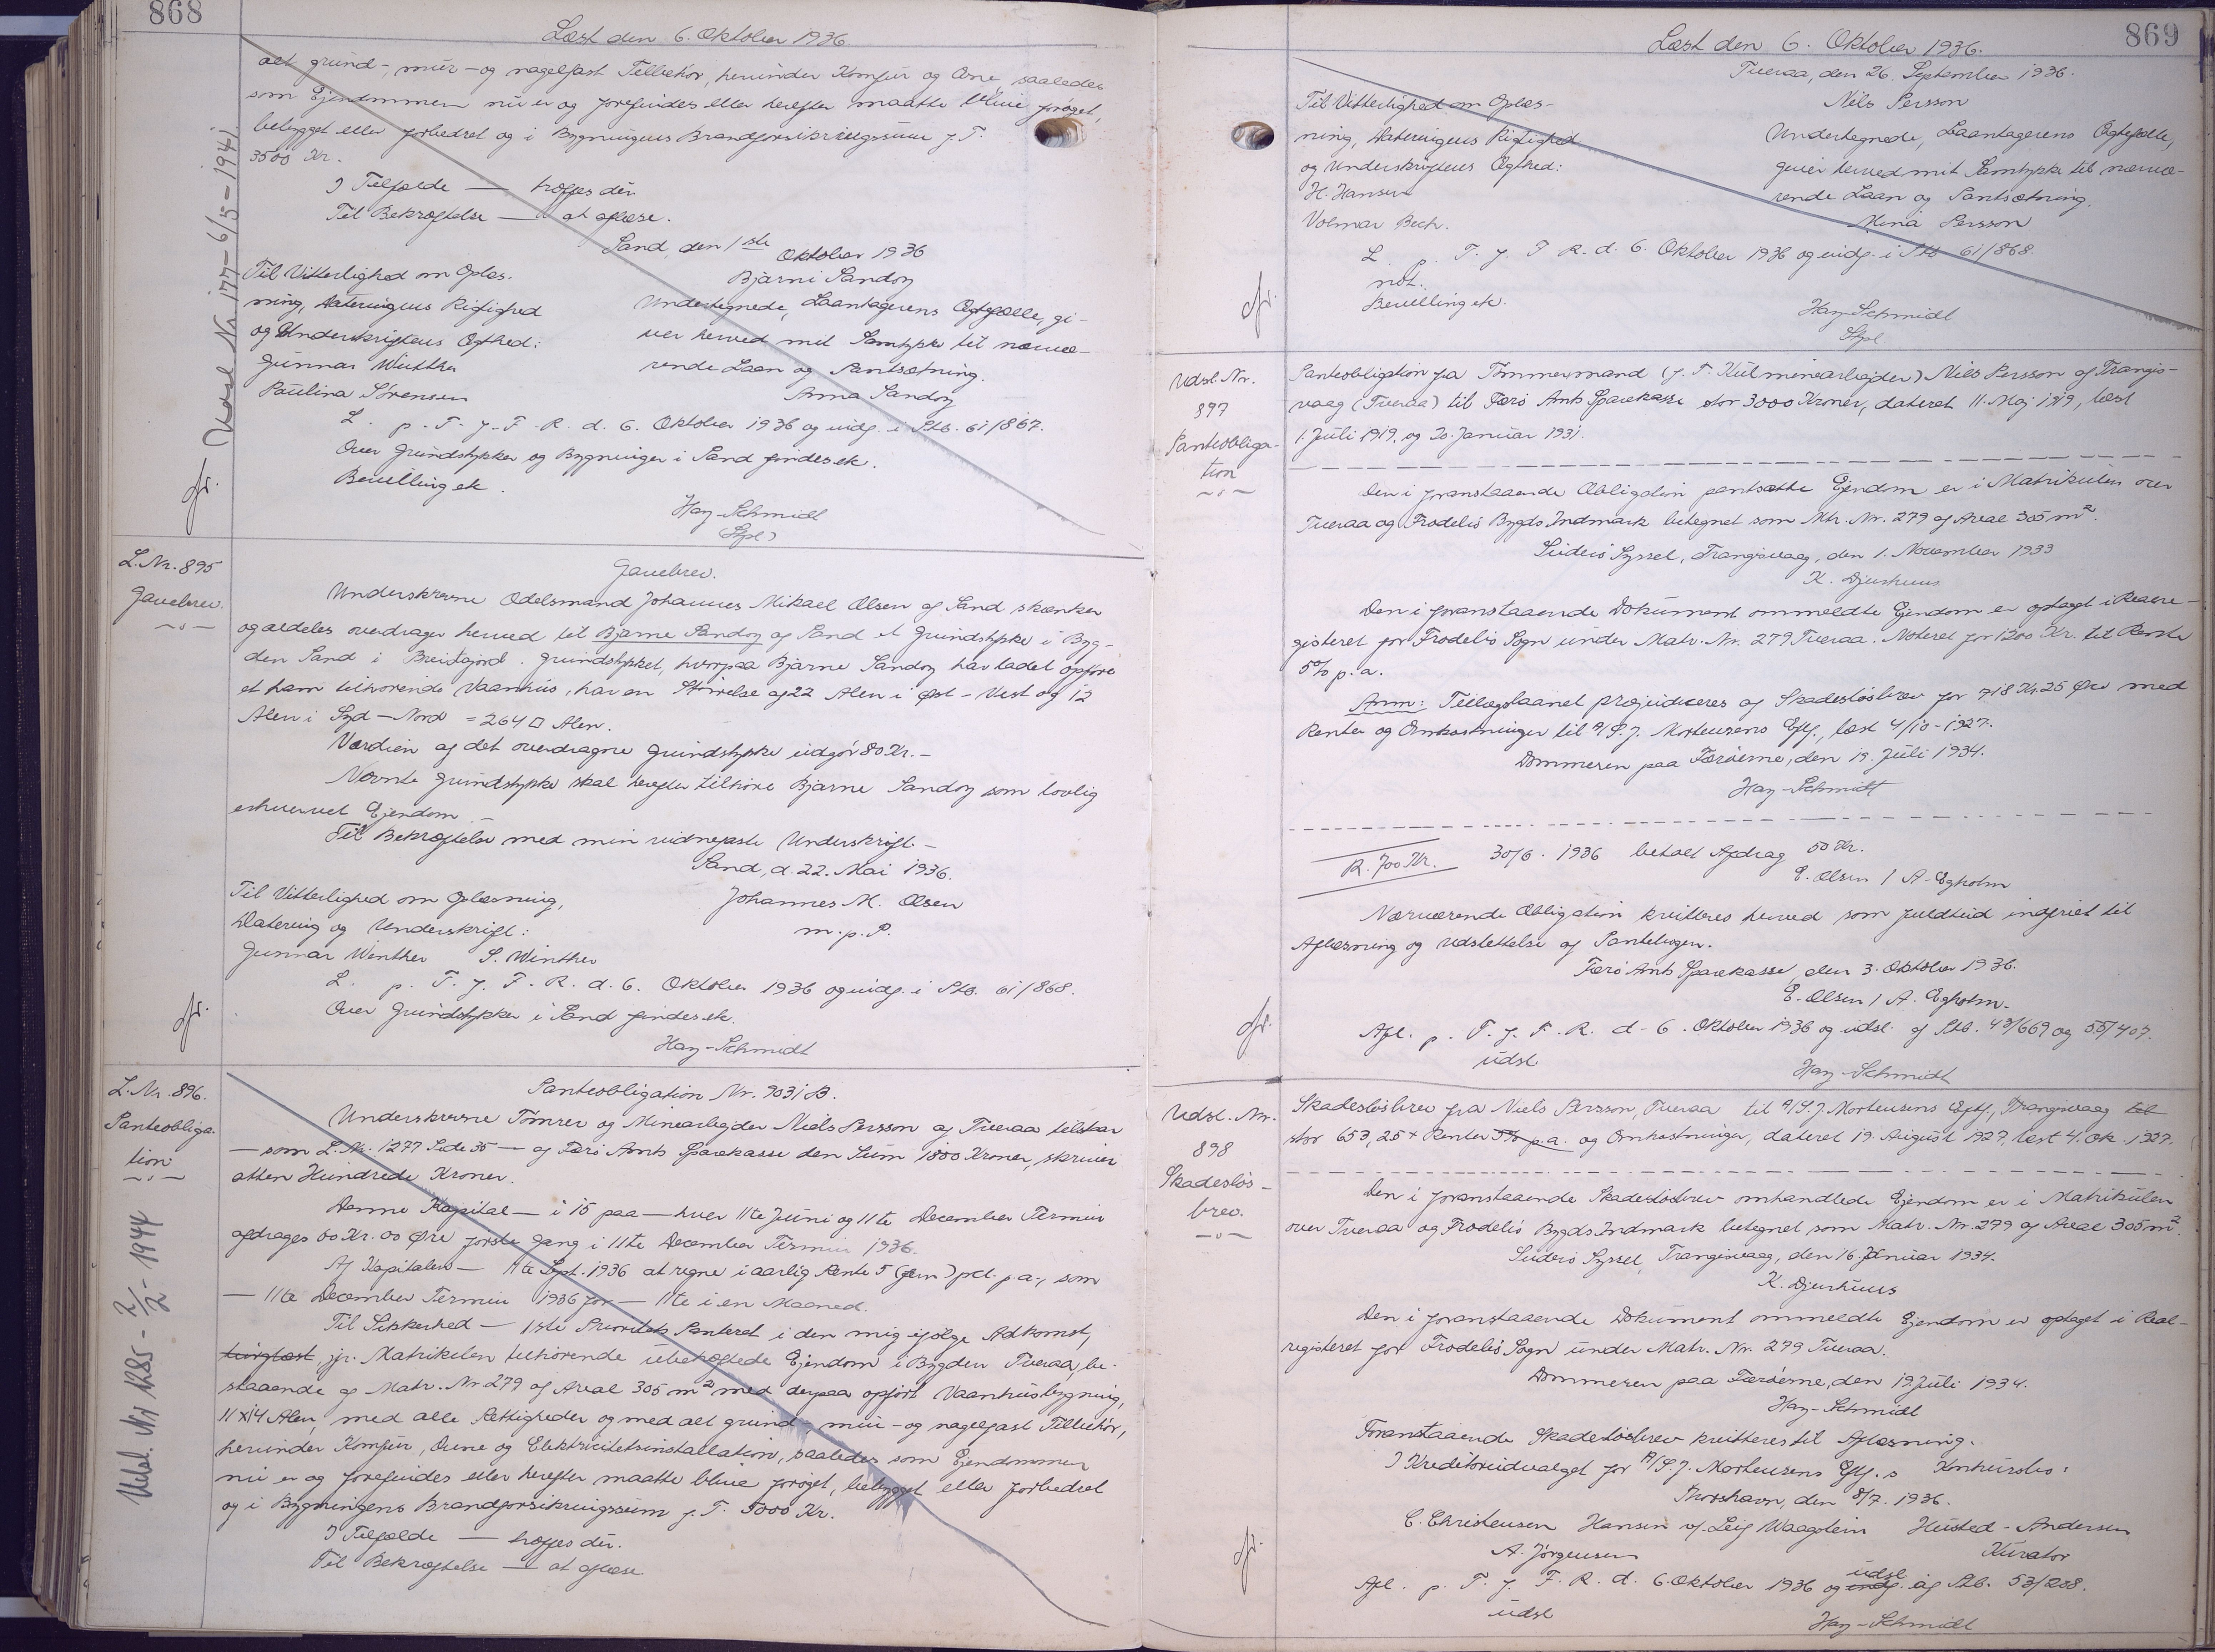 868
Læst den 6. Oktober 1936
alt grund-, mur- og nagelfast Tilbehör, herunder Komfur og Ovne saaledes
som Ejendommen nu er og forefindes eller herefter maatte blive forøget,
bebygget eller forbedret og i Bygningens Brandforsikringssum f. T.
3500 Kr.
I Tilfælde — træffes dér
Til Bekræftelse — at aflæse.
Sand, den 1ste Oktober 1936
Til Vitterlighed om Oplæs-
Bjarni Sandoy
ning, Dateringens Rigtighed
Undertegnede, Laantagerens Ægtefælle, gi-
og Underskriftens Ægthed:
ver herved mit Samtykke til nærvæ-
Gunnar Winther
rende Laan og Pantsætning.
Paulina Sørensen
Anna Sandoy
L. p. T. f. F. R. d. 6. Oktober 1936 og indf. i Ptb. 61/867.
Over Grundstykker og Bygninger i Sand findes ek.
Bevilling ek.
Hay-Schmidt
Stpl)
Udsl Nr 177 - 6/5 - 1941
cfr.
L. Nr. 895
Gavebrev.
Gavebrev.
Underskrevne Odelsmand Johannes Mikael Olsen af Sand skænker
og aldeles overdrager herved til Bjarne Sandoy af Sand et Grundstykke i Byg-
den Sand i Breidagjord. Grundstykket, hvorpaa Bjarne Sandoy har ladet opføre
et ham tilhørende Vaanhus, har en Størrelse af 22 Alen i Øst-Vest og 12
Alen i Syd-Nord = 264 □ Alen.
Værdien af det overdragne Grundstykke udgör 80 Kr. -
Nævnte Grundstykke skal herefter tilhöre Bjarne Sandoy som lovlig
erhvervet Ejendom. -
Til Bekræftelse med min vidnefaste Underskrift -
Sand, d. 22. Mai 1936.
Til Vitterlighed om Oplæsning,
Johannes M. Olsen
Datering og Underskrift:
m. p. P.
Gunnar Winther S. Winther
L. p. T. f. F. R. d. 6. Oktober 1936 og indf. i Ptb. 61/868.
Over Grundstykker i Sand findes ek.
Hay-Schmidt
cfr.
L. Nr. 896.
Panteobliga-
tion
Panteobligation Nr. 9031 B.
Underskrevne Tömrer og Minearbejder Niels Persson af Tveraa tilstaar
— som L. Nr. 1277 Side 35 — af Færö Amts Sparekasse den Sum 1800 Kroner, skriver
atten Hundrede Kroner.
Denne Kapital — i 15 paa — hver 11te Juni og 11te December Termin
afdrages 60 Kr. 00 Øre første Gang i 11te December Termin 1936.
Af Kapitalen — 11te Sept. 1936 at regne i aarlig Rente 5 (fem) pct. p. a., som
— 11te December Termin 1936 for — 11te i en Maaned.
Til Sikkerhed — 1ste Prioritets Panteret i den mig ifölge Adkomst,
tinglæst, jfr. Matrikelen tilhörende ubehæftede Ejendom i Bygden Tveraa, be-
staaende af Matr. Nr 279 af Areal 305 m² med derpaa opfört Vaanhusbygning,
11x14 Alen, med alle Rettigheder og med alt grund-, mur- og nagelfast Tilbehör,
herunder Komfur, Ovne og Elektricitetsinstallation, saaledes som Ejendommen
nu er og forefindes eller herefter maatte blive foröget, bebygget eller forbedret
og i Bygningens Brandforsikringssum f. T. 5000 Kr.
I Tilfælde — træffes dér.
Til Bekræftelse — at aflæse.
Udsl. Nr 1285 - 2/2 - 1944
869
Læst den 6. Oktober 1936.
Tveraa, den 26. September 1936.
Til Vitterlighed om Oplæs-
Niels Persson
ning, Dateringens Rigtighed
Undertegnede, Laantagerens Ægtefælle,
og Underskriftens Ægthed:
giver herved mit Samtykke til nærvæ-
H. Hansen
rende Laan og Pantsætning.
Volmar Bech.
Mina Persson
L. p. T. f. F. R. d. 6. Oktober 1936 og indf. i Ptb 61/868.
not.
Bevilling ek.
Hay-Schmidt
Stpl
cfr.
Udsl. Nr.
897
Panteobliga-
tion
Panteobligation fra Tömmermand (f. T. Kulminearbejder) Niels Persson af Trangis-
vaag (Tveraa) til Færö Amts Sparekasse stor 3000 Kroner, dateret 11. Maj 1919, læst
1. Juli 1919, og 20. Januar 1931.
Den i foranstaaende Obligation pantsatte Ejendom er i Matrikulen over
Tveraa og Frodebö Bygds Indmark betegnet som Mtr. Nr. 279 af Areal 305 m².
Suderö Syssel, Trangisvaag, den 1. November 1933
K. Djurhuus
Den i foranstaaende Dokument ommeldte Ejendom er optaget i Realre-
gisteret for Frodebö Sogn under Matr. Nr. 279 Tveraa. Noteret for 1200 Kr. til Rente
5% p. a.
Anm: Tillægslaanet præjudiceres af Skadeslösbrev for 718 Kr. 25 Øre med
Renter og Omkostninger til A/S. J. Mortensens Eftf., læst 4/10-1927.
Dommeren paa Færöerne, den 19. Juli 1934.
Hay-Schmidt
R. 700 Kr.
30/6. 1936 betalt Afdrag 50 Kr.
E. Olsen / A. Egholm
Nærværende Obligation kvitteres herved som fuldtud indfriet til
Aflæsning og Udslettelse af Pantebogen.
Færö Amts Sparekasse, den 3. Oktober 1936.
E. Olsen / A. Egholm.
Afl. p. T. f. F. R. d. 6. Oktober 1936 og udsl. af Ptb. 43/669 og 55/407.
udsl
Hay-Schmidt
cfr.
Udsl. Nr.
898
Skadeslös-
brev.
Skadeslösbrev fra Niels Persson, Tveraa til A/S. J. Mortensens Eftf, Trangisvaag til
stor 653,25 + Renter 5% p.a. og Omkostninger, dateret 19. August 1927, læst 4. Ok. 1927.
Den i foranstaaende Skadeslösbrev omhandlede Ejendom er i Matrikulen
over Tveraa og Frodebö Bygds Indmark betegnet som Matr. Nr. 279 af Areal 305 m².
Suderö Syssel, Trangisvaag, den 16. Januar 1934.
K. Djurhuus
Den i foranstaaende Dokument ommeldte Ejendom er optaget i Real-
registeret for Frodebö Sogn under Matr. Nr. 279 Tveraa.
Dommeren paa Færöerne, den 19. Juli 1934.
Hay-Schmidt
Foranstaaende Skadeslösbrev kvitteres til Aflæsning.
I Kreditorudvalget for A/S J. Mortensens Eftf.s Konkursbo:
Thorshavn, den 8/7. 1936.
C. Christensen Hansen v/. Leif Waagstein Husted-Andersen
A. Jörgensen
Kurator
Afl. p. T. f. F. R. d. 6. Oktober 1936 og indf. udsl af Ptb. 53/238.
udsl
Hay-Schmidt
cfr.